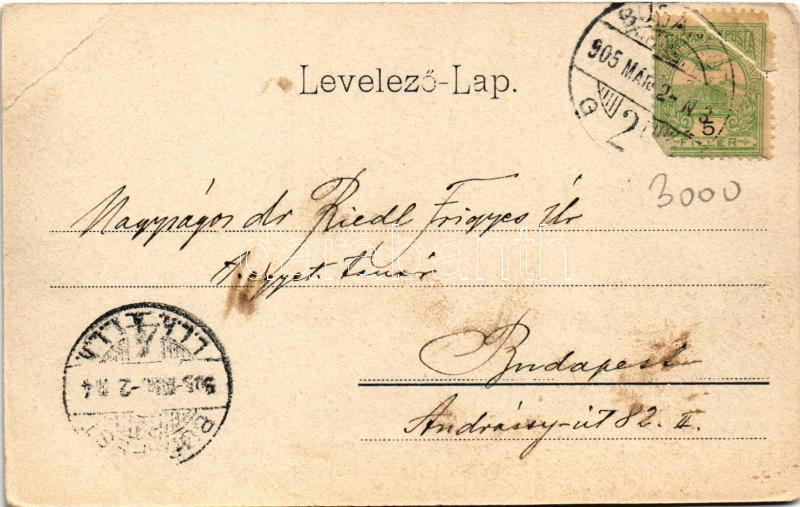 Levelező-Lap.
905 MÁR. 2. N 3
5
FILLÉR
3000
Nagyságos dr Riedl Frigyes úr
darabanth
egyet. tanár
Budapest
Andrássy-út 82. II.
905 MÁR. -2 N 4